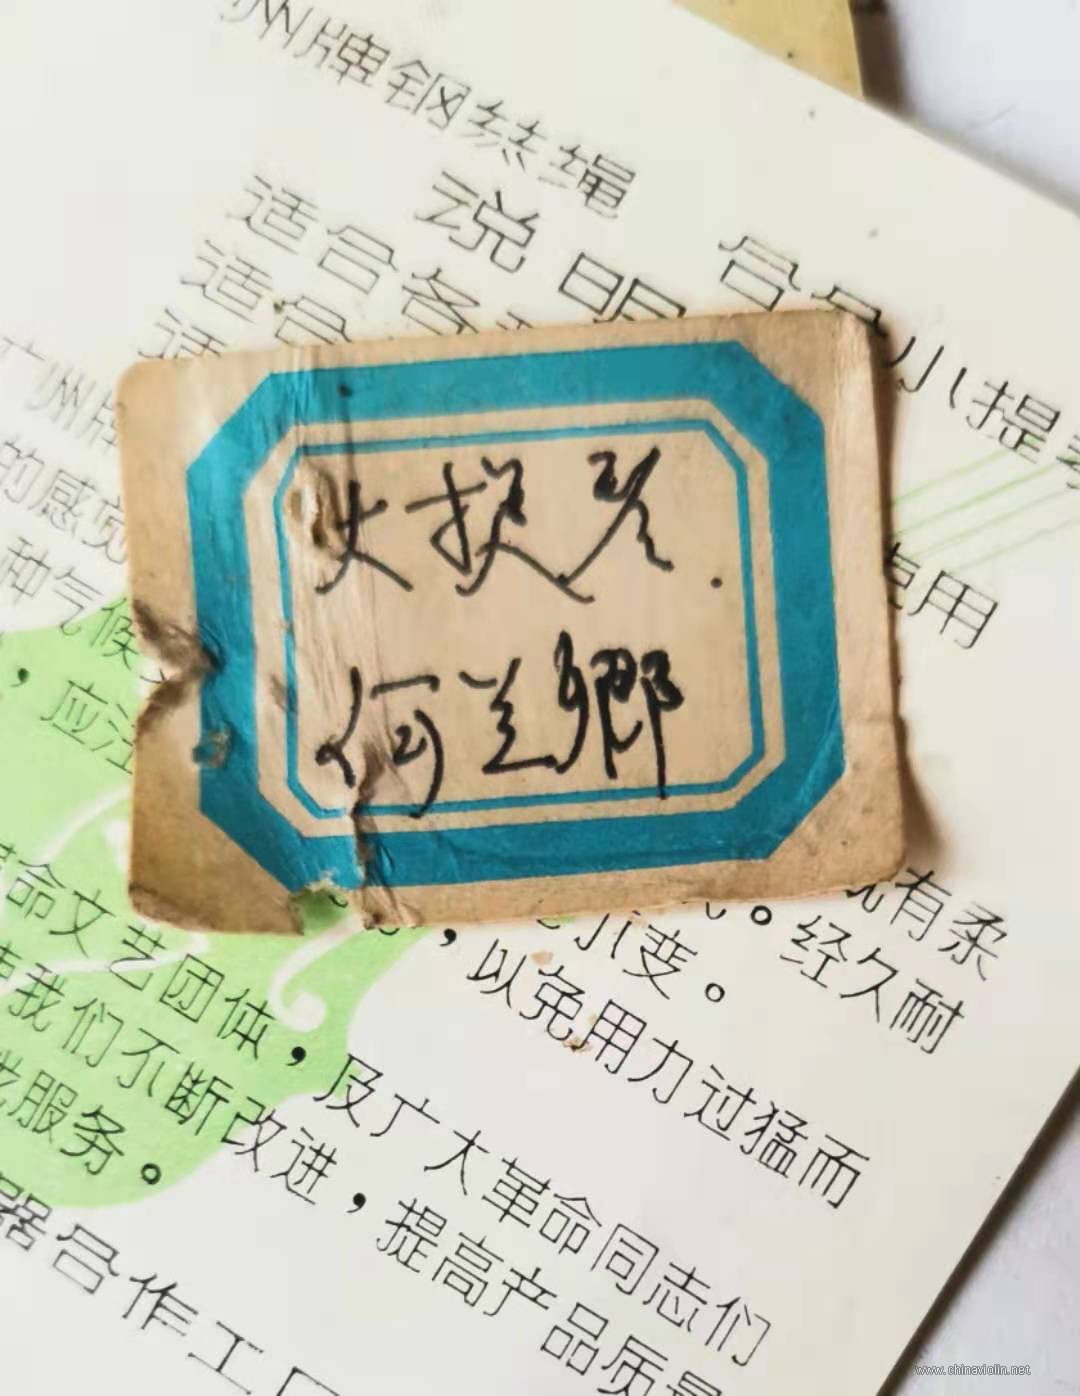 州牌钢丝绳
说明
适合各
适合
适
合号小提琴
广州牌
的感觉
种气候
使用
，应注
大提琴.
何兰鄉
有柔
。经久耐
小变。
，以免用力过猛而
革命文艺团体，及广大革命同志们
使我们不断改进，提高产品质量
服务。
器合作工厂
www.chinaviolin.net